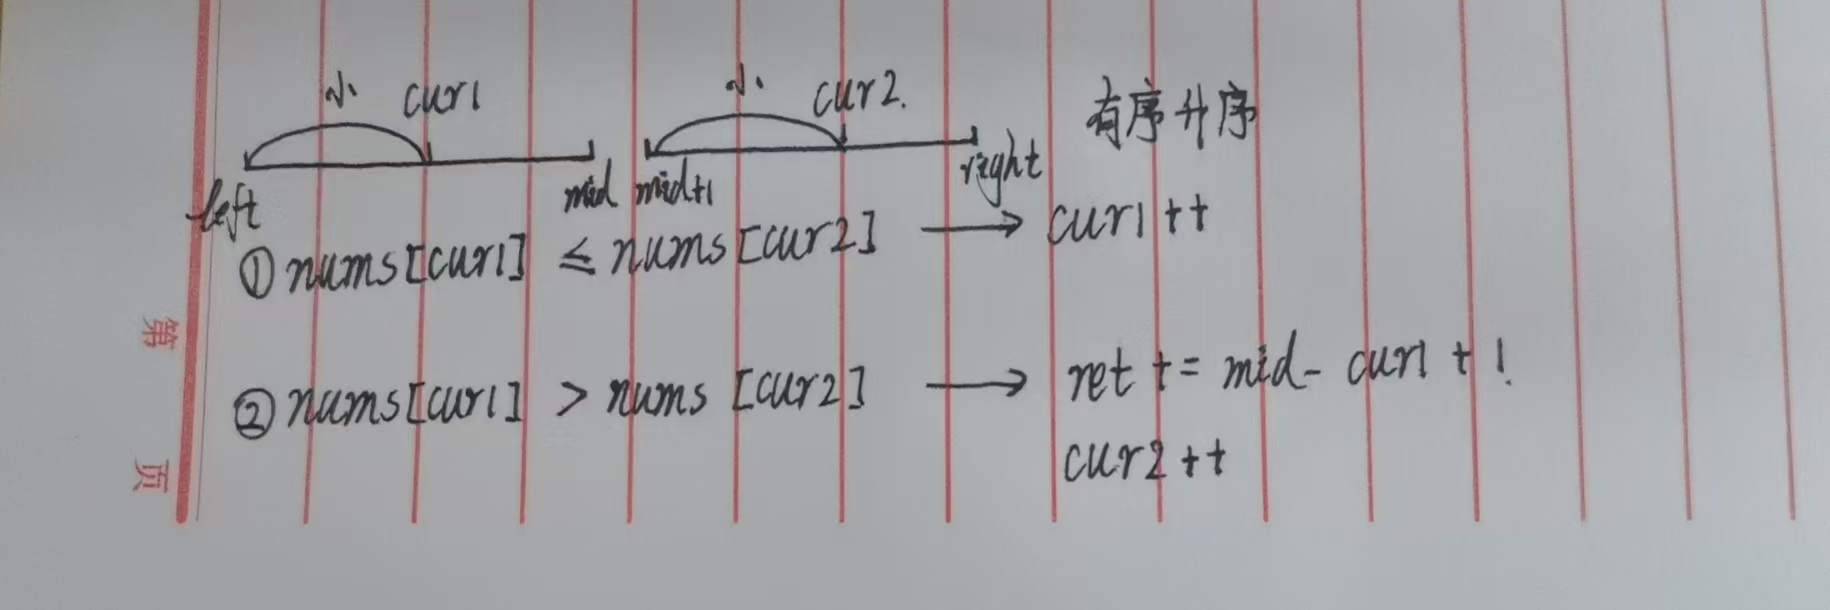 小 cur1 小 cur2. 有序升序
left mid mid+1 right
① nums[cur1] ≤ nums[cur2] → cur1++
② nums[cur1] > nums[cur2] → ret += mid - cur1 + 1
cur2++
第
页